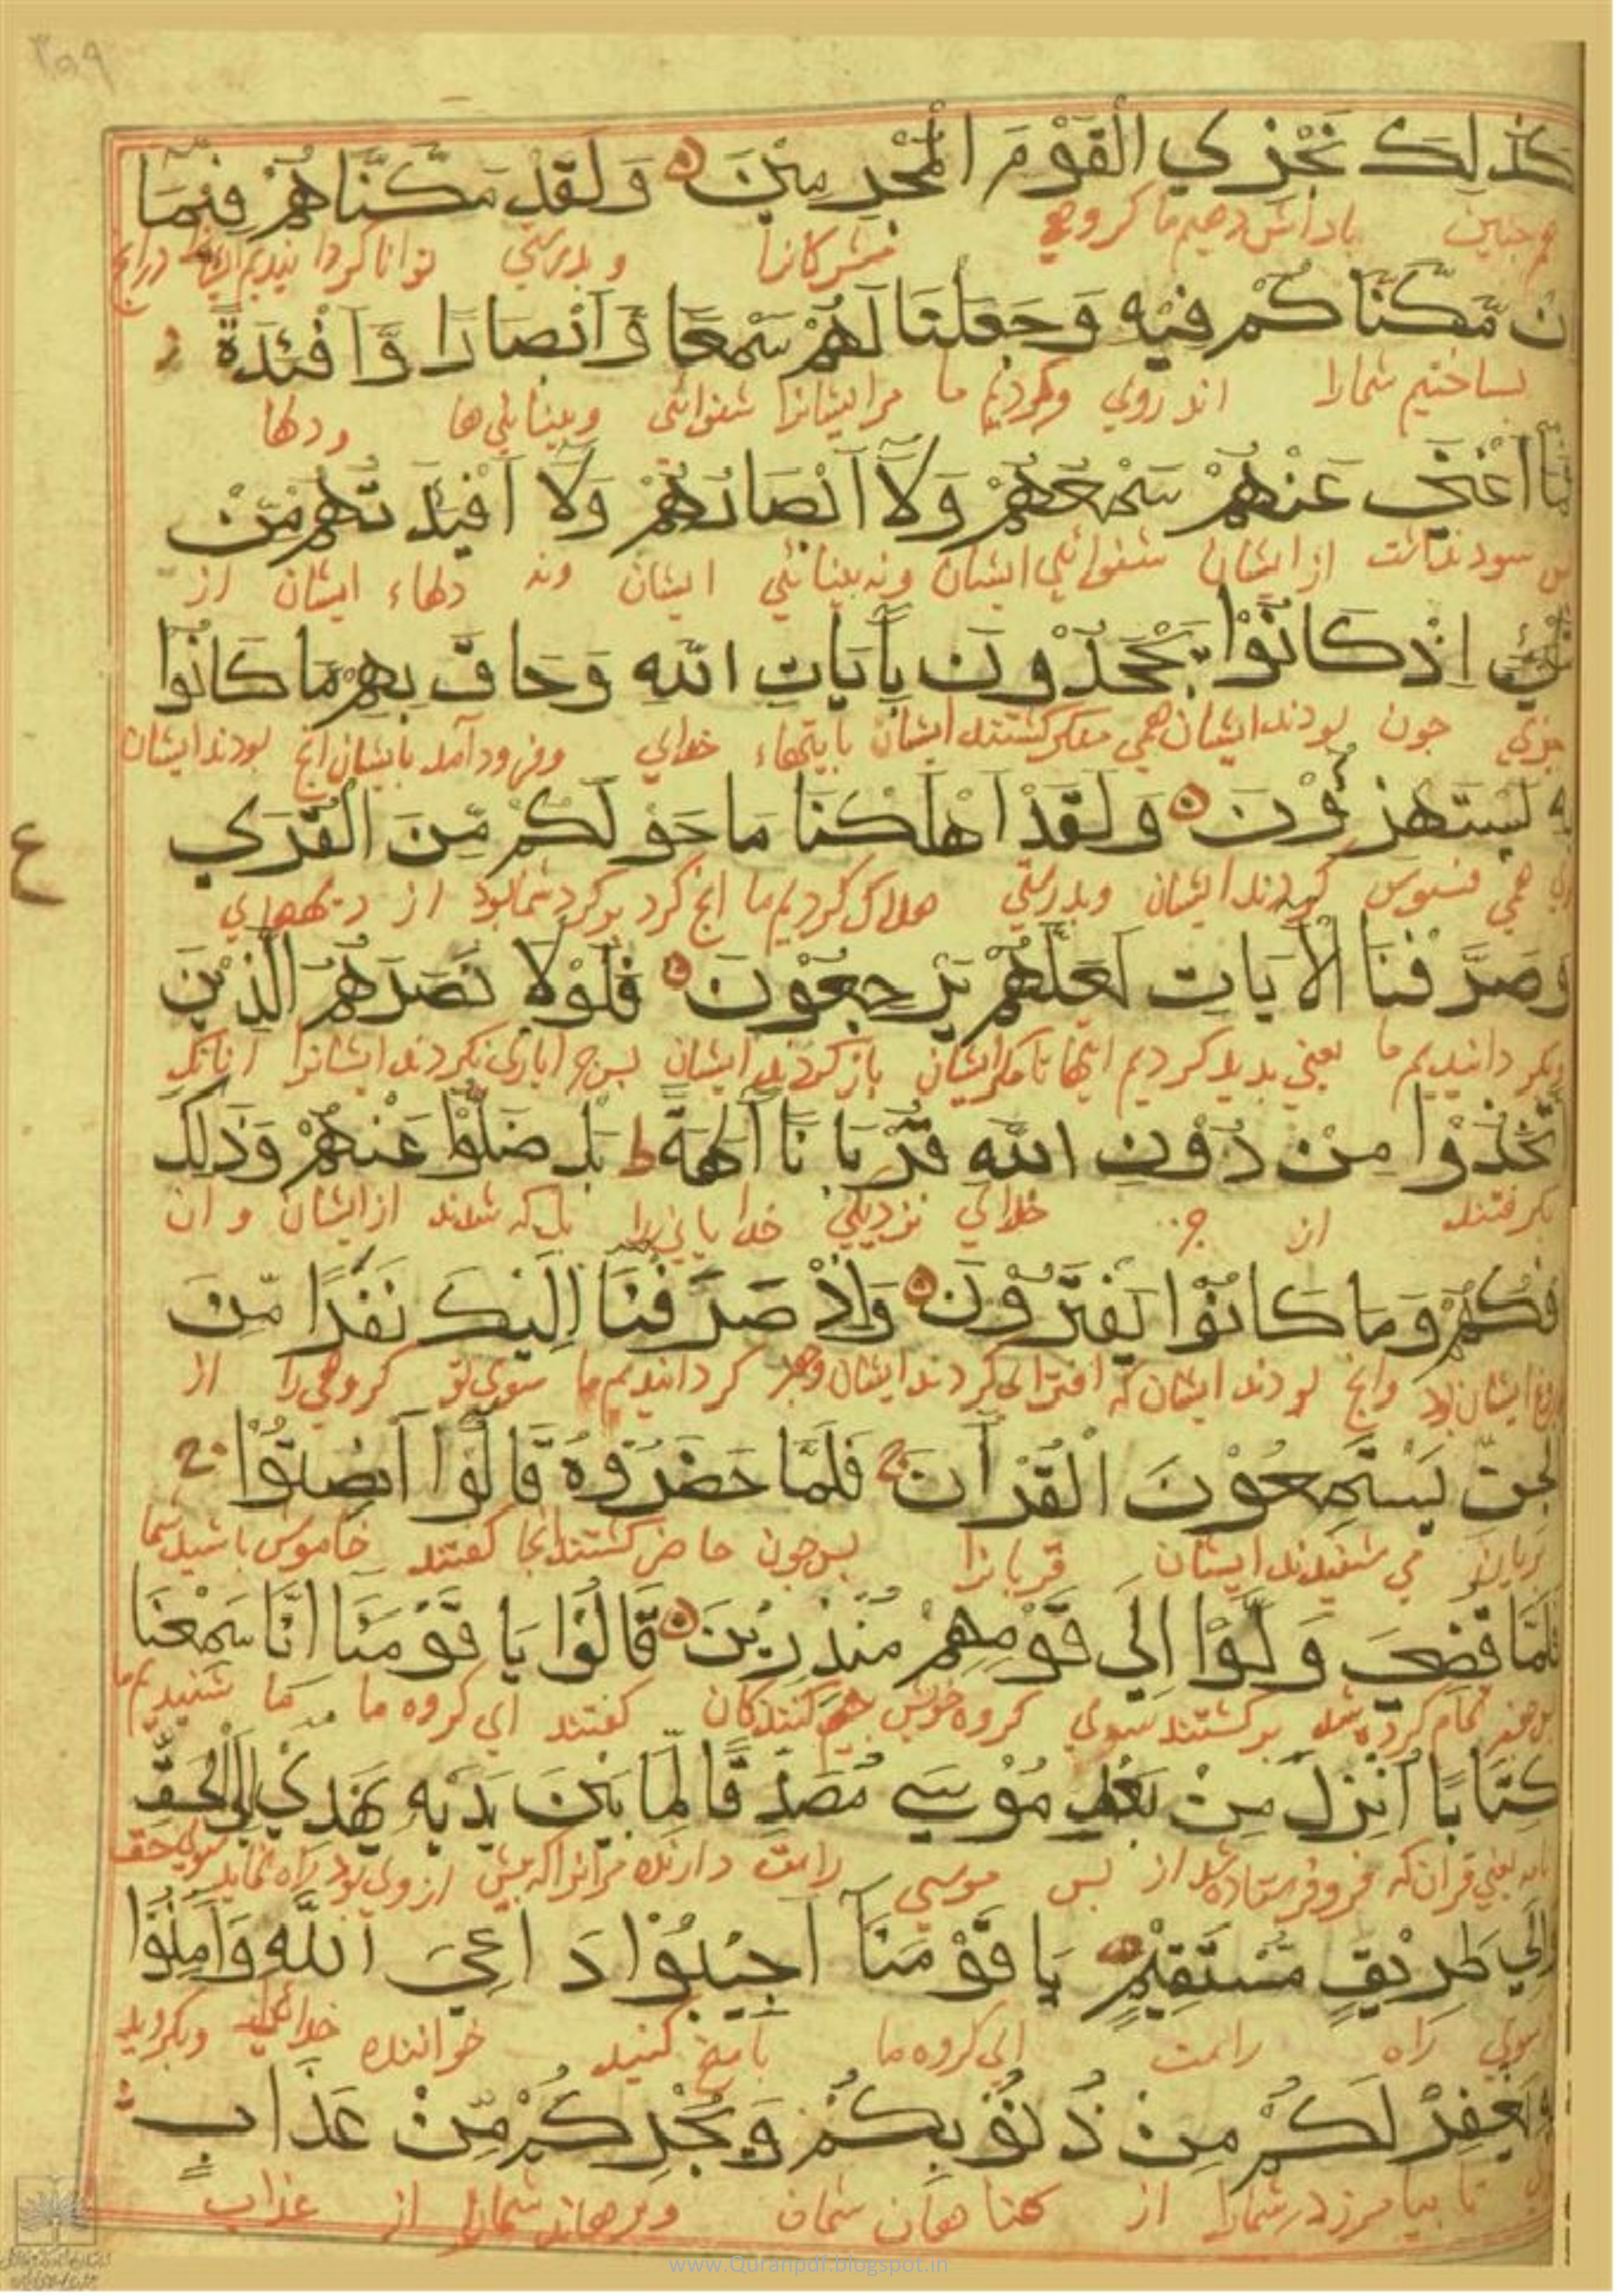 ۳۵۹
كَذٰلِكَ نَجْزِي الْقَوْمَ الْمُجْرِمِيْنَ وَلَقَدْ مَكَّنَّاهُمْ فِيْمَا
هم جنین باداش دهیم ما کروهی مشرکانرا و بدرستی توانا کردانیدیم ایشانرا درانج
اِنْ مَّكَّنَّاكُمْ فِيْهِ وَجَعَلْنَا لَهُمْ سَمْعًا وَّاَبْصَارًا وَّاَفْئِدَةً
بساختیم شمارا اندروی وکردیم ما مرایشانرا شنوائی وبینایی‌ها ودلها
فَمَا اَغْنٰي عَنْهُمْ سَمْعُهُمْ وَلَآ اَبْصَارُهُمْ وَلَآ اَفْئِدَتُهُمْ مِّنْ
بس سود نداشت از ایشان شنوائی ایشان ونه بینائی ایشان ونه دلهاء ایشان از
شَيْءٍ اِذْ كَانُوْا يَجْحَدُوْنَ بِاٰيَاتِ اللّٰهِ وَحَاقَ بِهِمْ مَا كَانُوْا
جزی جون بودند ایشان همی منکر کشتند ایشان بآیتهاء خدای وفرود آمد بایشان انج بودند ایشان
بِهٖ يَسْتَهْزِؤُوْنَ وَلَقَدْ اَهْلَكْنَا مَا حَوْلَكُمْ مِّنَ الْقُرٰي
همی فسوس کردند ایشان وبدرستی هلاک کردیم ما انج کرد برکرد شما بود از دیهها
وَصَرَّفْنَا الْاٰيَاتِ لَعَلَّهُمْ يَرْجِعُوْنَ فَلَوْلَا نَصَرَهُمُ الَّذِيْنَ
بکردانیدیم ما یعنی بدید کردیم ایتها تا مکر ایشان باز کردند ایشان بس جرا یاری نکردند ایشانرا انانک
اتَّخَذُوْا مِنْ دُوْنِ اللّٰهِ قُرْبَانًا اٰلِهَةً ط بَلْ ضَلُّوْا عَنْهُمْ وَذٰلِكَ
بکرفتند از جز خدای نزدیکی خدایانی را بلکه شدند از ایشان و ان
اِفْكُهُمْ وَمَا كَانُوْا يَفْتَرُوْنَ وَاِذْ صَرَفْنَا اِلَيْكَ نَفَرًا مِّنَ
دروغ ایشان بود وانج بودند ایشان که افترا می‌کردند ایشان کردانیدیم ما سوی تو کروهی را از
الْجِنِّ يَسْتَمِعُوْنَ الْقُرْاٰنَ ج فَلَمَّا حَضَرُوْهُ قَالُوْا اَنْصِتُوْا ج
بریان می شنیدند ایشان بس جون حاضر کشتند انجا کفتند خاموش باشید شما
فَلَمَّا قُضِيَ وَلَّوْا اِلٰي قَوْمِهِمْ مُنْذِرِيْنَ قَالُوْا يَا قَوْمَنَا اِنَّا سَمِعْنَا
تمام کرده شد برکشتند سوی کروه خویش بیم کنندکان کفتند ای کروه ما ما شنیدیم
كِتَابًا اُنْزِلَ مِنْ بَعْدِ مُوْسٰي مُصَدِّقًا لِّمَا بَيْنَ يَدَيْهِ يَهْدِيْ اِلَي الْحَقِّ
یعنی قران که فروفرستاده شد از بس موسی راست دارنده مرانرا که بیش از وی بود راه نماید سوی حق
وَاِلٰي طَرِيْقٍ مُّسْتَقِيْمٍ يَا قَوْمَنَآ اَجِيْبُوْا دَاعِيَ اللّٰهِ وَاٰمِنُوْا
سوی راه راست ای کروه ما باسخ کنید خواننده خدای وبکروید
بِهٖ يَغْفِرْ لَكُمْ مِنْ ذُنُوْبِكُمْ وَيُجِرْكُمْ مِّنْ عَذَابٍ
تا بیامرزد شمارا از کناهان شمان وبرهاند شمارا از عذاب
ع
www.Quranpdf.blogspot.in